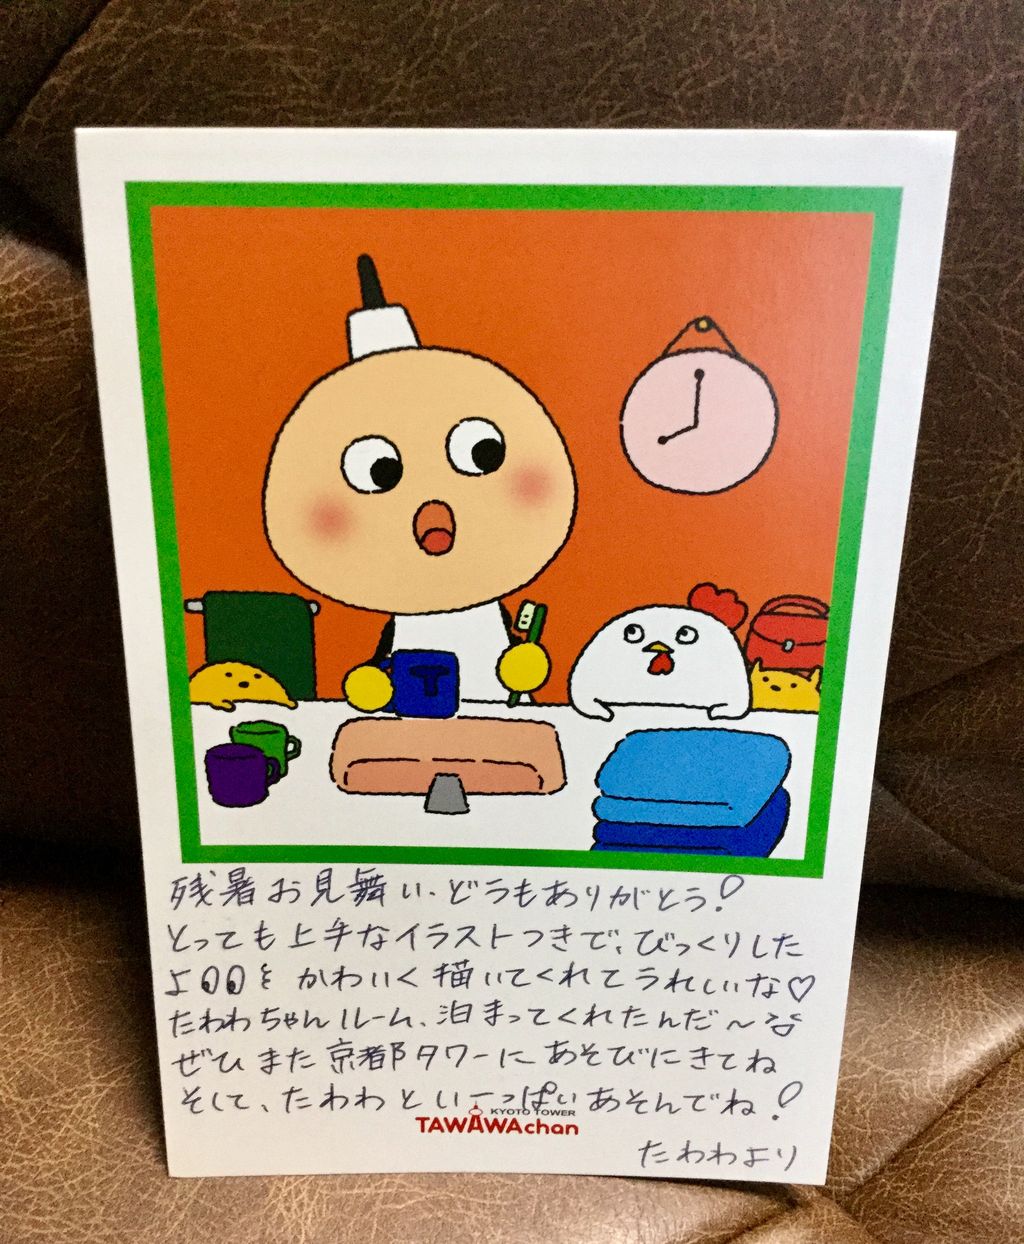 T
残暑お見舞い、どうもありがとう!
とっても上手なイラストつきで、びっくりした
よ をかわいく描いてくれてうれしいな♡
たわわちゃんルーム、泊まってくれたんだ〜
ぜひまた京都タワーにあそびにきてね
そして、たわわといーっぱいあそんでね!
KYOTO TOWER
TAWAWAchan
たわわより